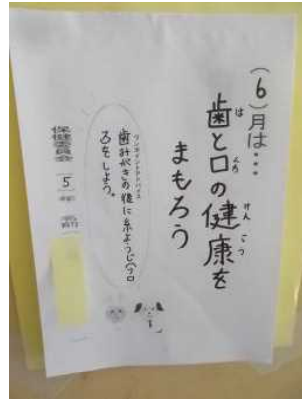 (6)月は・・・
歯と口の健康を
まもろう
ワンポイントアドバイス
歯みがきの後に糸ようじ(フロ
スをしよう。
保健委員会 5年 名前